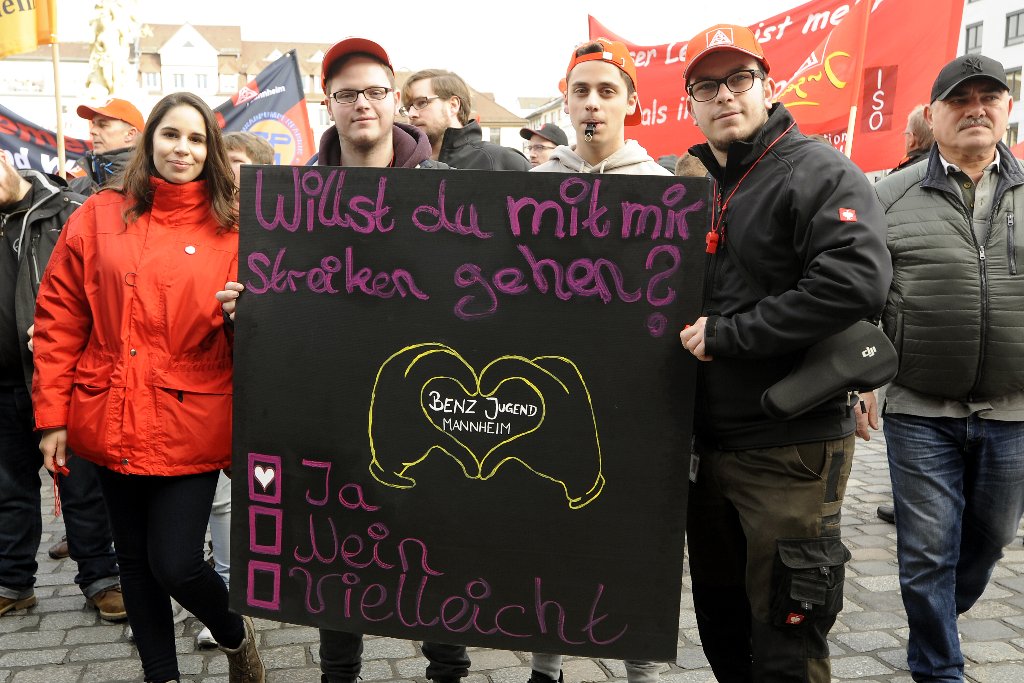 Willst du mit mir
streiken gehen?
BENZ JUGEND
MANNHEIM
Ja
Nein
Vielleicht
ist me
als i
ISO
dji